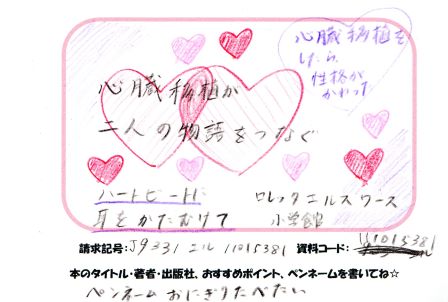 心臓移植を
したら
性格が
かわった
心臓移植が
二人の物語をつなぐ
ハートビートに
耳をかたむけて
ロレッタエルスワース
小学館
請求記号:J9331 エル 11015381 資料コード: 11015381
本のタイトル・著者・出版社、おすすめポイント、ペンネームを書いてね☆
ペンネーム おにぎりたべたい